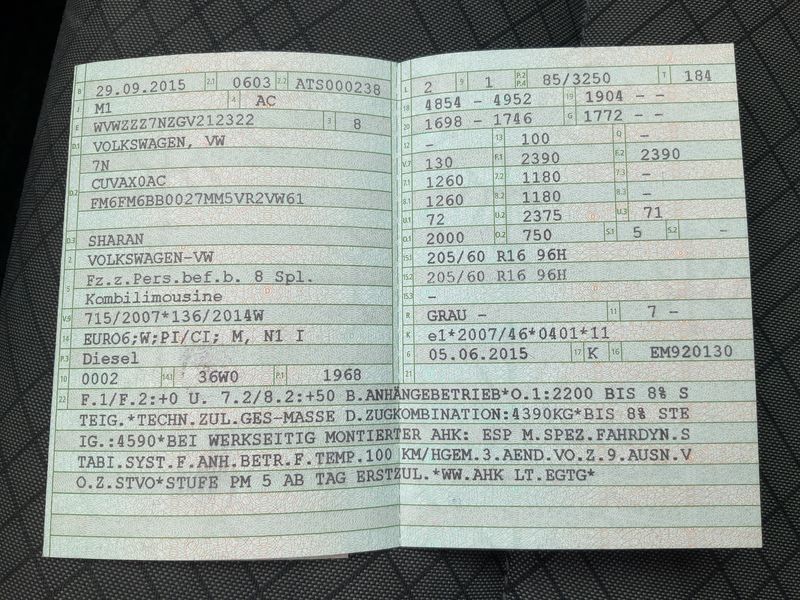 B 29.09.2015 2.1 0603 2.2 ATS000238
J M1 4 AC
E WVWZZZ7NZGV212322 3 8
D.1 VOLKSWAGEN, VW
7N
D.2 CUVAX0AC
FM6FM6BB0027MM5VR2VW61
D.3 SHARAN
2 VOLKSWAGEN-VW
5 Fz.z.Pers.bef.b. 8 Spl.
Kombilimousine
V.9 715/2007*136/2014W
14 EURO6;W;PI/CI; M, N1 I
P.3 Diesel
10 0002 14.1 36W0 P.1 1968
L 2 9 1 P.2 P.4 85/3250 T 184
18 4854 - 4952 19 1904 - -
20 1698 - 1746 G 1772 - -
12 - 13 100 Q -
V.7 130 F.1 2390 F.2 2390
7.1 1260 7.2 1180 7.3 -
8.1 1260 8.2 1180 8.3 -
U.1 72 U.2 2375 U.3 71
O.1 2000 O.2 750 S.1 5 S.2 -
15.1 205/60 R16 96H
15.2 205/60 R16 96H
15.3 -
R GRAU - 11 7 -
K e1*2007/46*0401*11
6 05.06.2015 17 K 16 EM920130
21
22 F.1/F.2:+0 U. 7.2/8.2:+50 B.ANHÄNGEBETRIEB*O.1:2200 BIS 8% S
TEIG.*TECHN.ZUL.GES-MASSE D.ZUGKOMBINATION:4390KG*BIS 8% STE
IG.:4590*BEI WERKSEITIG MONTIERTER AHK: ESP M.SPEZ.FAHRDYN.S
TABI.SYST.F.ANH.BETR.F.TEMP.100 KM/HGEM.3.AEND.VO.Z.9.AUSN.V
O.Z.STVO*STUFE PM 5 AB TAG ERSTZUL.*WW.AHK LT.EGTG*